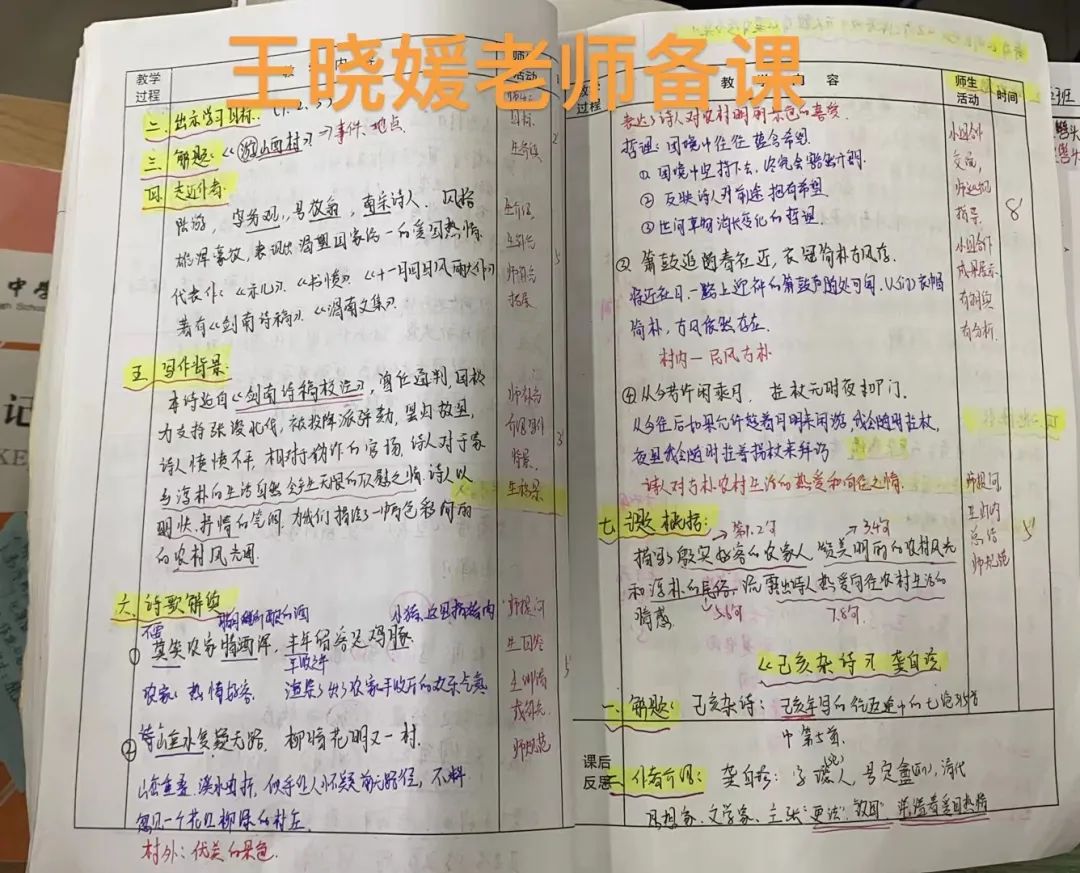 王晓媛老师备课
教学过程
师生活动
二、出示学习目标
三、解题:《游山西村》⇒事件、地点
四、走近作者:
陆游,字务观,号放翁,南宋诗人.风格
雄浑豪放,表现出渴望国家统一的爱国热情.
代表作:《示儿》.《书愤》.《十一月四日风雨大作》
著有《剑南诗稿》.《渭南文集》.
五、写作背景:
本诗选自《剑南诗稿校注》,
力支持张浚北伐,被投降派弹劾,罢归故里,
诗人愤愤不平,相对于诡诈的官场,诗人对于家
乡淳朴的生活自然会产生无限的欣慰之情.诗人以
明快、抒情的笔调,为我们描绘了一幅色彩明丽
的农村风光图.
六、诗歌解读
小猪,这里指猪肉
①莫笑农家腊酒浑,丰年留客足鸡豚
丰收之年
农家:热情好客. 渲染了出了农家丰收后的欢乐气氛
②山重水复疑无路,柳暗花明又一村.
山峦重叠,溪水曲折,似乎让人怀疑前无路径,不料
忽见一个花红柳绿的村庄.
村外:优美的景色.
师提问
生回答
师规范
教学内容
师生活动
时间
表达了诗人对农村明丽景色的喜爱.
哲理:困境中往往蕴含希望.
①困境中坚持下去,终究会豁然开朗.
②反映诗人对前途抱有希望
③世间事物消长变化的哲理.
③箫鼓追随春社近,衣冠简朴古风存.
将近社日,一路上迎神的箫鼓声随处可闻,人们衣帽
简朴,古风依然存在.
村内—民风古朴
④从今若许闲乘月,拄杖无时夜叩门.
从今往后如果允许趁着月明来闲游,我会随时拄杖,
夜里我会随时拄着拐杖来拜访
诗人对古朴农村生活的热爱和向往之情.
七、概括:
第1.2句
3.4句
描写了殷实好客的农家人,赞美明丽的农村风光
和淳朴的民俗,流露出诗人热爱向往农村生活的
情感.
5.6句
7.8句
小组合作
交流,
师巡视
指导.
小组合作
成果展示
8
师提问
总结
师规范
5
《己亥杂诗》龚自珍
一、解题:己亥杂诗:己亥年写的
中第5首.
课后反思
二、作者介绍:龚自珍:字璱人,号定盦(ān),清代
思想家.文学家.主张"更法""改图",洋溢着爱国热情